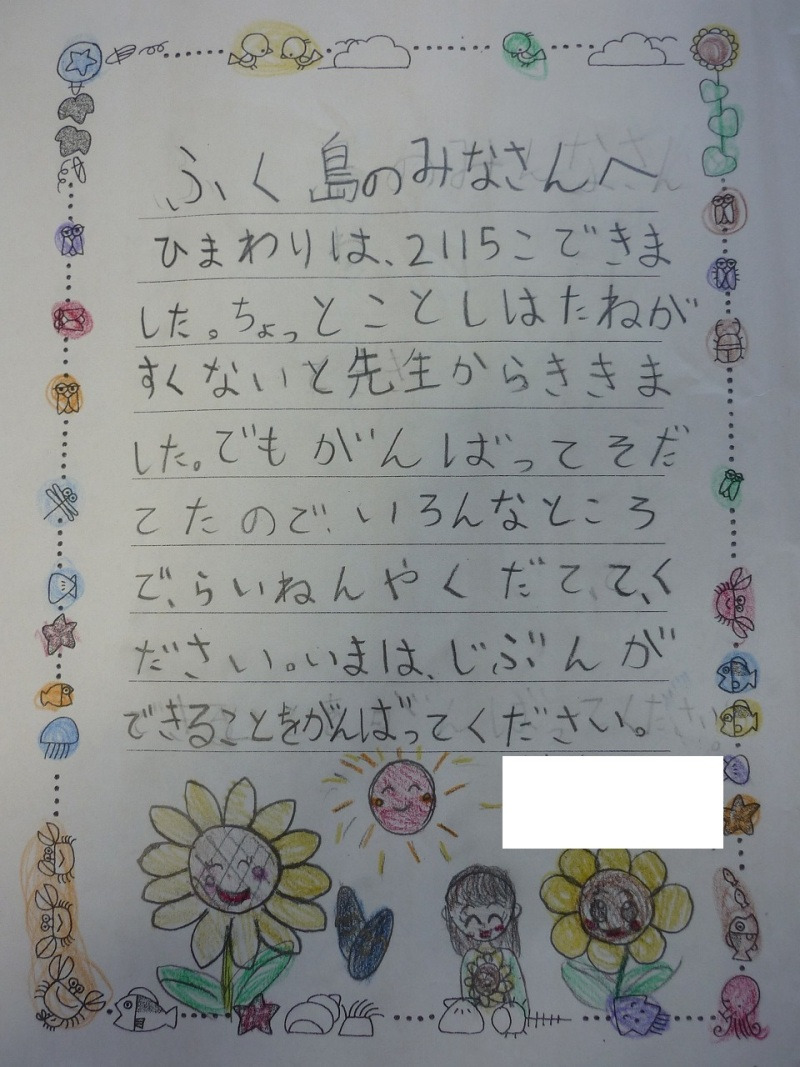 ふく島のみなさんへ
ひまわりは、2115こできま
した。ちょっとことしはたねが
すくないと先生からききま
した。でもがんばってそだ
てたので、いろんなところ
で、らいねんやくだて、て、く
ださい。いまは、じぶんが
できることをがんばってください。